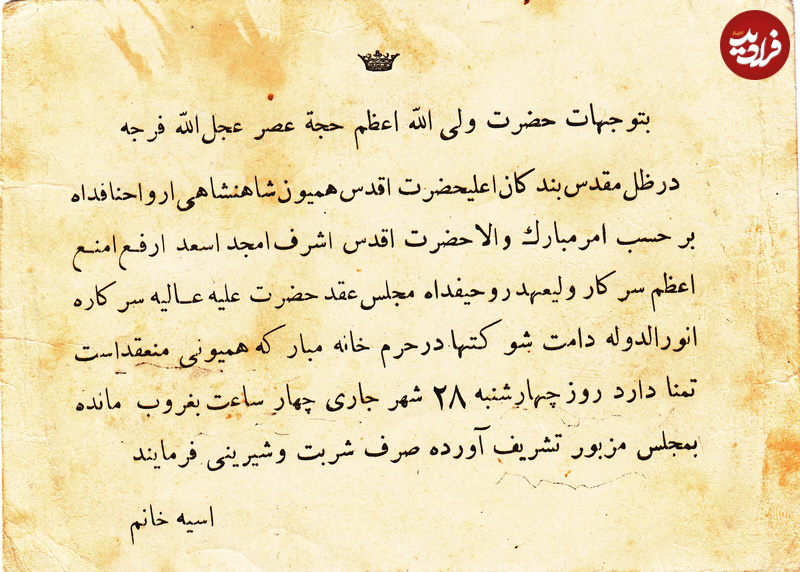 فرادید
بتوجهات حضرت ولی الله اعظم حجة عصر عجل الله فرجه
در ظل مقدس بندکان اعلیحضرت اقدس همیون شاهنشاهی ارواحنا فداه
بر حسب امر مبارك والاحضرت اقدس اشرف امجد اسعد ارفع امنع
اعظم سرکار ولیعهد روحیفداه مجلس عقد حضرت علیه عالیه سرکاره
انورالدوله دامت شوکتها در حرم خانه مبارکه همیونی منعقداست
تمنا دارد روز چهارشنبه ۲۸ شهر جاری چهار ساعت بغروب مانده
بمجلس مزبور تشریف آورده صرف شربت وشیرینی فرمایند
اسیه خانم